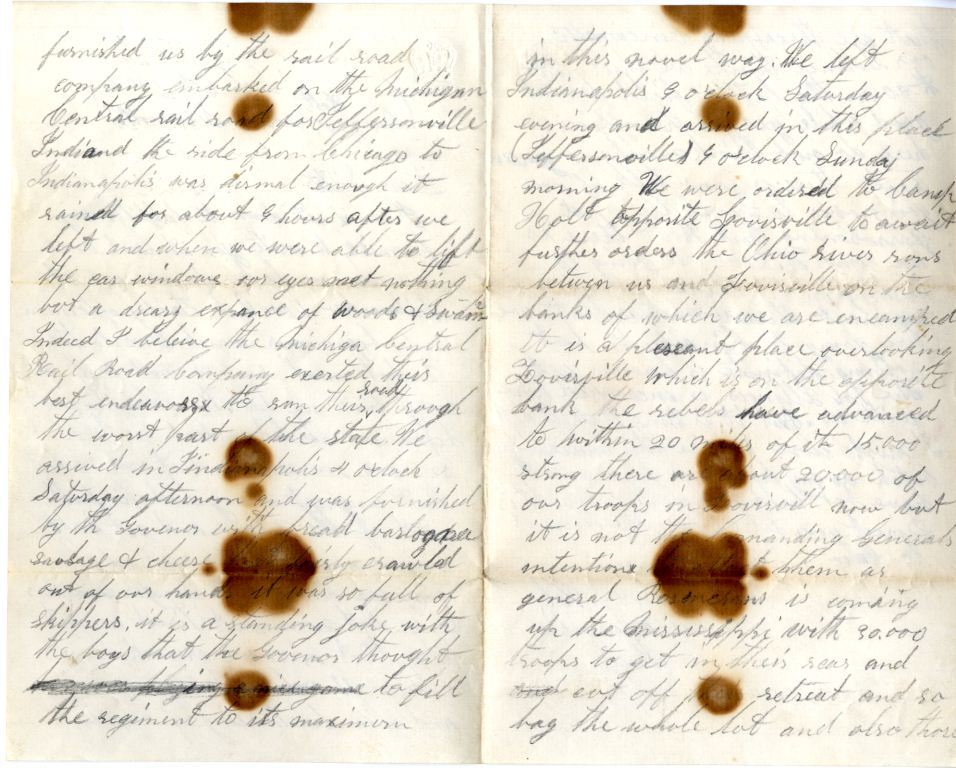 furnished us by the rail road
company embarked on the Michigan
Central rail road for Jeffersonville
Indiand the ride from Chicago to
Indianapolis was dismal enough it
rained for about 9 hours after we
left and when we were able to lift
the car windows our eyes met nothing
but a dreary expance of woods & Swamp
Indeed I beleive the Michiga Central
Rail Road Company exerted their
best endeavors to run their road through
the worst part of the state. We
arrived in Indianapolis 4 oclock
Saturday afternoon and was furnished
by th Govenor with bread
sausage & cheese fairly crawled
out of our hands it was so full of
skippers, it is a standing joke with
the boys that the Govenor thought
to fill
the regiment to its maximum
in this novel way. We left
Indianapolis 9 oclock Saturday
evening and arrived in this place
(Jeffersonville) 9 oclock Sunday
morning We were ordered to Camp
Holt opposite Louisville to await
further orders the Ohio river runs
between us and Louisville on the
banks of which we are encamped
It is a pleseant place overlooking
Loverville which is on the opposite
bank the rebels have advanced
to within 20 miles of it 15.000
strong there are about 20.000 of
our troops in Louisvill now but
it is not the Commanding Generals
intention them as
general Rosencrans is coming
up the Mississippi with 30.000
troops to get in their rear and
and cut off their retreat and so
bag the whole lot and also those